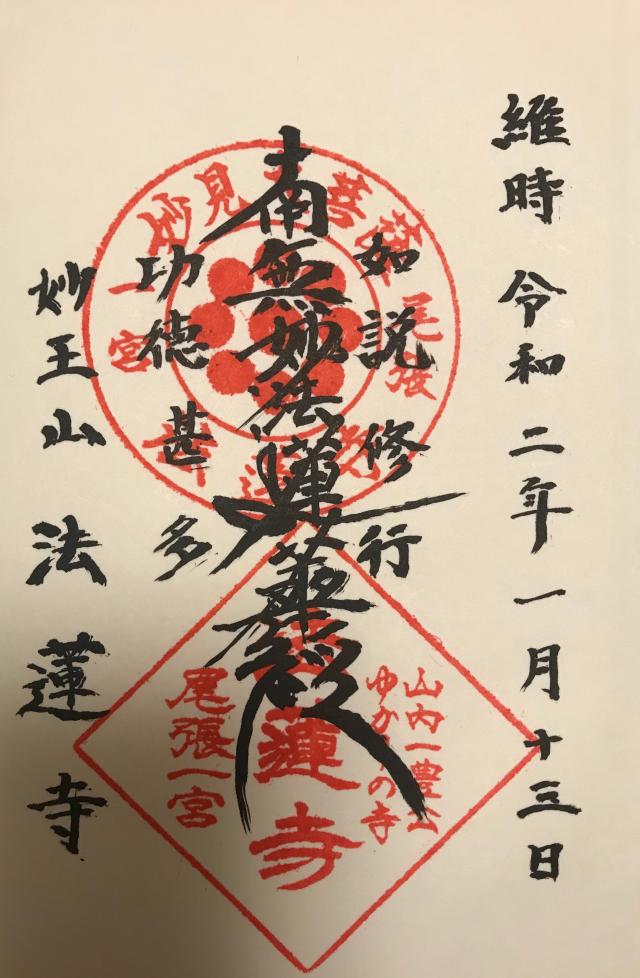 維時 令和二年一月十三日
如説修行
南無妙法蓮華経
功徳甚多
妙王山 法蓮寺
尾張
一宮
山内一豊公
ゆかりの寺
法蓮寺
尾張一宮